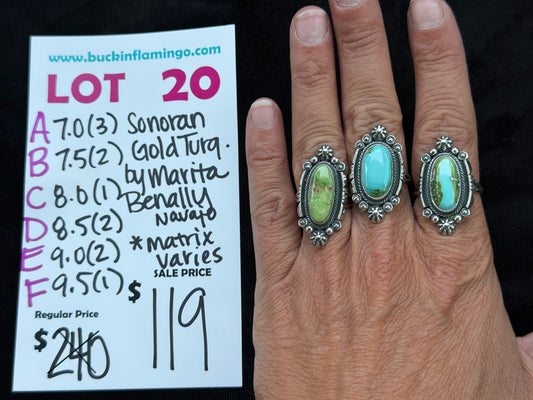 www.buckinflamingo.com
LOT 20
A 7.0(3) Sonoran
B 7.5(2) Gold Turq.
C 8.0(1) by Marita
D 8.5(2) Benally
Navajo
E 9.0(2) *matrix
F 9.5(1) varies
SALE PRICE
$119
Regular Price
$240